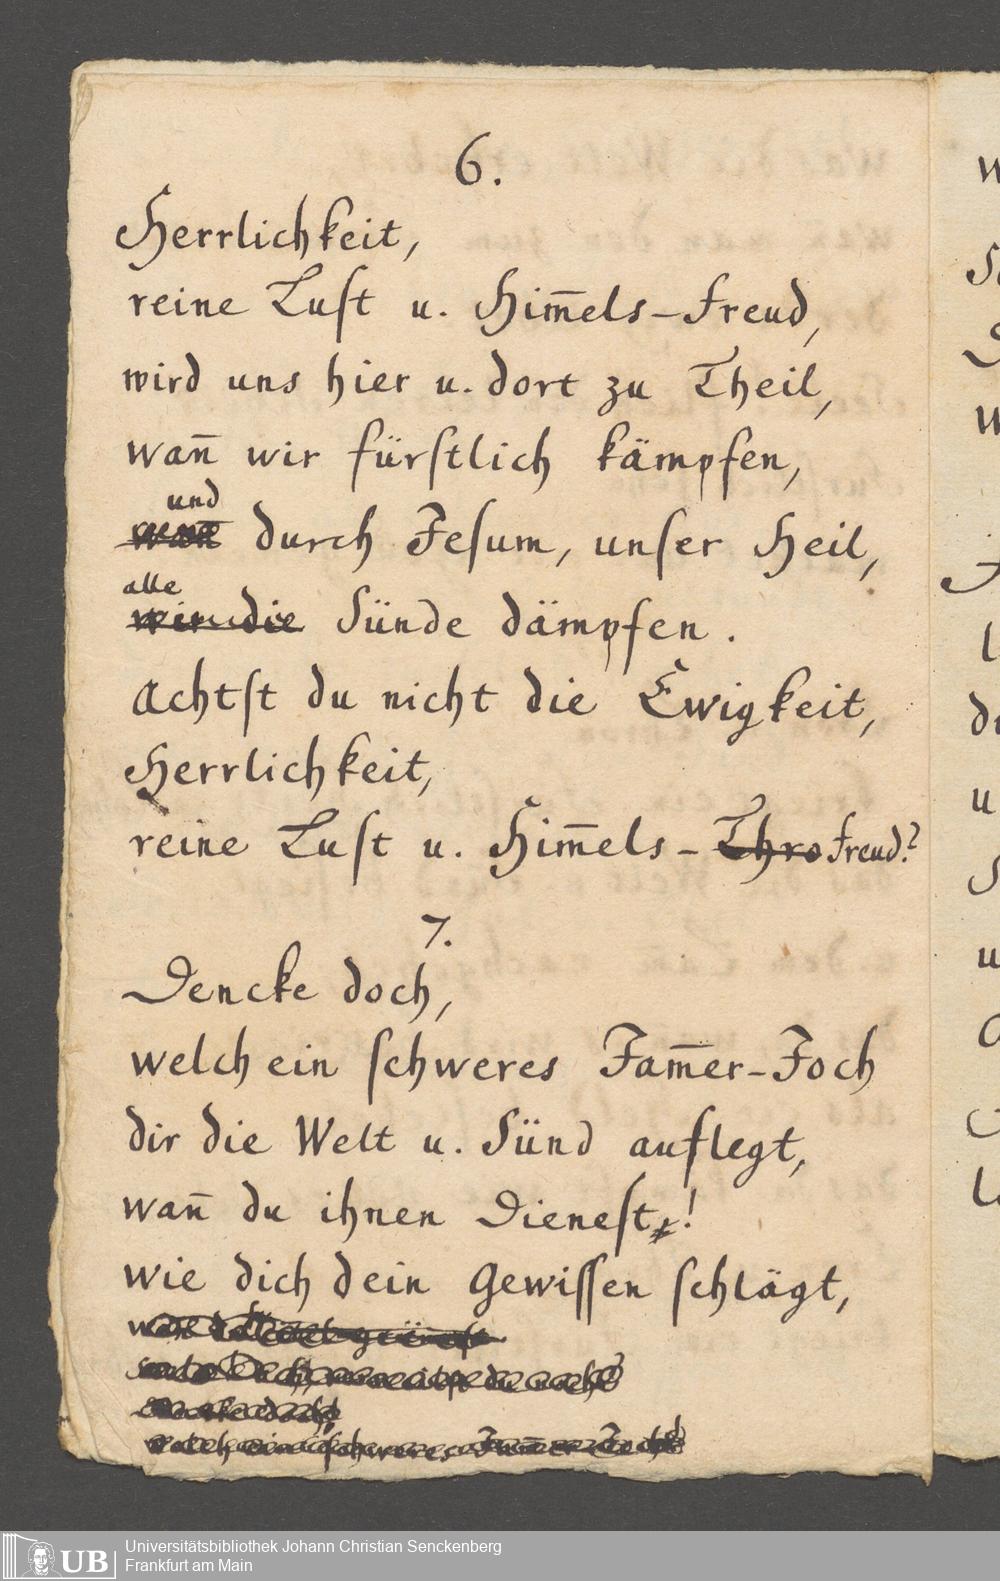 6.
Herrlichkeit,
reine Luſt u. Him̅els-Freud,
wird uns hier u. dort zu Theil,
wan̅ wir fürſtlich kämpfen,
und
wan̅ durch Jeſum, unſer Heil,
alle
wir die Sünde dämpfen.
Achtſt du nicht die Ewigkeit,
Herrlichkeit,
reine Luſt u. Him̅els- Thro Freud?
7.
Dencke doch,
welch ein ſchweres Jam̅er-Joch
dir die Welt u. Sünd auflegt,
wan̅ du ihnen Dieneſt!
wie dich dein Gewiſſen ſchlägt,
welch ein ſchweres Jam̅er Joch
Universitätsbibliothek Johann Christian Senckenberg
Frankfurt am Main
UB